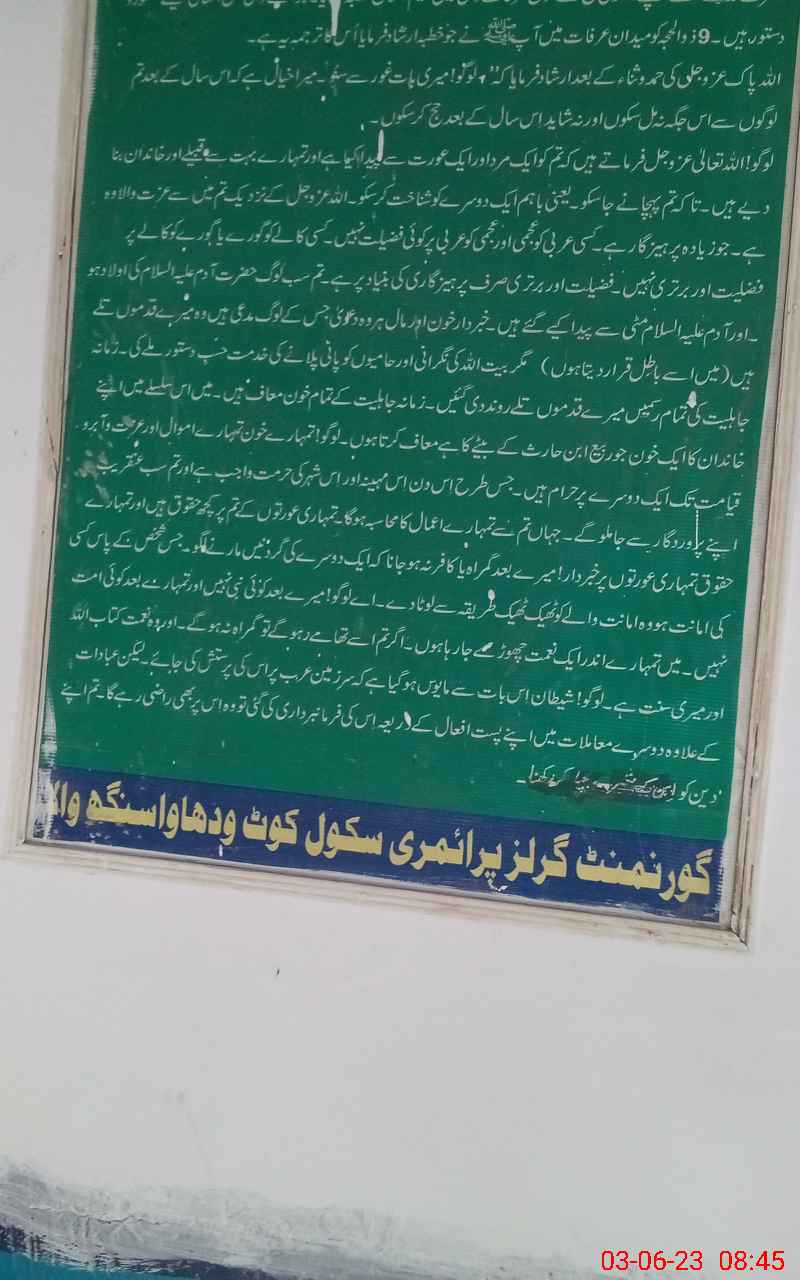 دستور ہیں۔ 9 ذوالحجہ کو میدان عرفات میں آپ ﷺ نے جو خطبہ ارشاد فرمایا اُس کا ترجمہ یہ ہے۔
اللہ پاک عزوجل کی حمد و ثناء کے بعد ارشاد فرمایا کہ" لوگو! میری بات غور سے سنو۔ میرا خیال ہے کہ اس سال کے بعد تم
لوگوں سے اس جگہ نہ مل سکوں اور نہ شاید اس سال کے بعد حج کر سکوں۔
لوگو! اللہ تعالیٰ عزوجل فرماتے ہیں کہ تم کو ایک مرد اور ایک عورت سے پیدا کیا ہے اور تمہارے بہت سے قبیلے اور خاندان بنا
دیے ہیں۔ تا کہ تم پہچانے جا سکو۔ یعنی باہم ایک دوسرے کو شناخت کر سکو۔ اللہ عزوجل کے نزدیک تم میں سے عزت والا وہ
ہے۔ جو زیادہ پرہیز گار ہے۔ کسی عربی کو عجمی اور عجمی کو عربی پر کوئی فضیلت نہیں۔ کسی کالے کو گورے یا گورے کو کالے پر
فضلیت اور برتری نہیں۔ فضیلت اور برتری صرف پرہیز گاری کی بنیاد پر ہے۔ تم سب لوگ حضرت آدم علیہ السلام کی اولاد ہو
۔ اور آدم علیہ السلام مٹی سے پیدا کیے گئے ہیں۔ خبردار خون اور مال ہر وہ دعویٰ جس کے لوگ مدعی ہیں وہ میرے قدموں تلے
ہیں (میں اسے باطل قرار دیتا ہوں) مگر بیت اللہ کی نگرانی اور حاجیوں کو پانی پلانے کی خدمت حسب دستور ملے گی۔ زمانہ
جاہلیت کی تمام رسمیں میرے قدموں تلے روند دی گئیں۔ زمانہ جاہلیت کے تمام خون معاف ہیں۔ میں اس سلسلے میں اپنے
خاندان کا ایک خون جو ربیع ابن حارث کے بیٹے کا ہے معاف کرتا ہوں۔ لوگو! تمہارے خون تمہارے اموال اور عزت و آبرو
قیامت تک ایک دوسرے پر حرام ہیں۔ جس طرح اس دن اس مہینہ اور اس شہر کی حرمت واجب ہے اور تم سب عنقریب
اپنے پروردگار سے جا ملو گے۔ جہاں تم سے تمہارے اعمال کا محاسبہ ہوگا۔ تمہاری عورتوں کے تم پر کچھ حقوق ہیں اور تمہارے
حقوق تمہاری عورتوں پر خبردار! میرے بعد گمراہ یا کافر نہ ہو جانا کہ ایک دوسرے کی گردنیں مارنے لگو۔ جس شخص کے پاس کسی
کی امانت ہو وہ امانت والے کو ٹھیک ٹھیک طریقہ سے لوٹا دے۔ اے لوگو! میرے بعد کوئی نبی نہیں اور تمہارے بعد کوئی امت
نہیں۔ میں تمہارے اندر ایک نعمت چھوڑے جا رہا ہوں۔ اگر تم اسے تھامے رہو گے تو گمراہ نہ ہو گے۔ اور وہ نعمت کتاب اللہ
اور میری سنت ہے۔ لوگو! شیطان اس بات سے مایوس ہو گیا ہے کہ سرزمین عرب پر اس کی پرستش کی جائے۔ لیکن عبادات
کے علاوہ دوسرے معاملات میں اپنے پست افعال کے ذریعہ اس کی فرمانبرداری کی گئی تو وہ اس پر بھی راضی رہے گا۔ تم اپنے
دین کو
گورنمنٹ گرلز پرائمری سکول کوٹ ودھاوا سنگھ
03-06-23 08:45